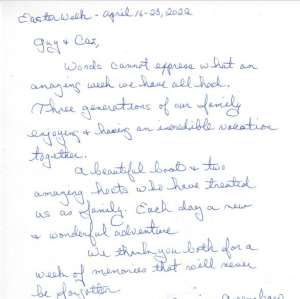 Easter Week - April 16-23, 2022
Guy & Caz,
Words cannot express what an
amazing week we have all had.
Three generations of our family
enjoying & having an incredible vacation
together.
A beautiful boat & two
amazing hosts who have treated
us as family. Each day a new
& wonderful adventure
We thank you both for a
week of memories that will never
be forgotten.